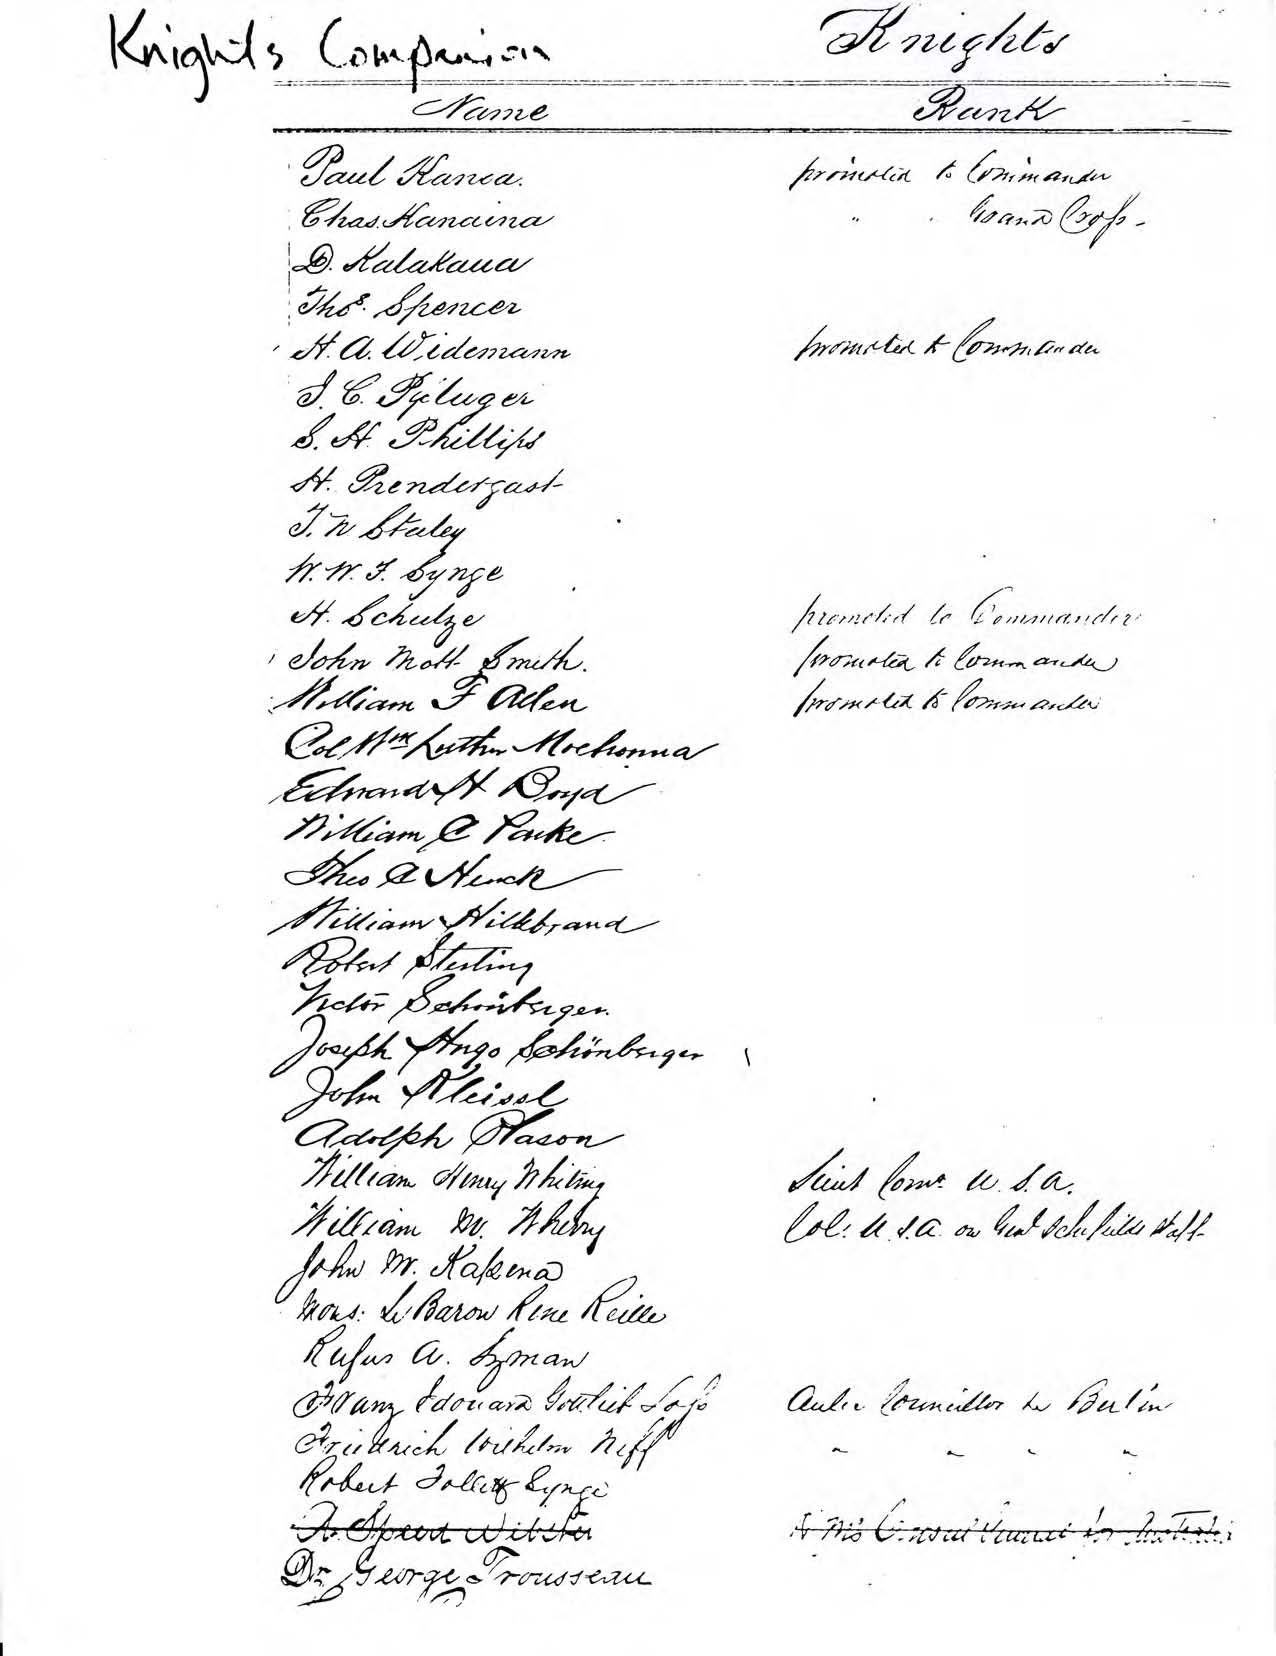 Knights Companion
Knights
Name Rank
Paul Kanoa. promoted to Commander
Chas. Kanaina " " Grand Cross -
D. Kalakaua
Thos. Spencer
H. A. Widemann promoted to Commander
J. C. Pfluger
S. H. Phillips
H. Prendergast
T. N Staley
W. W. F. Synge
H. Schulze promoted to Commander
John Mott Smith. promoted to Commander
William F Allen promoted to Commander
Col Wm Luther Moehonua
Edward H Boyd
William C Parke
Theo C Heuck
William Hillebrand
Robert Stirling
Victor Schönberger.
Joseph Hugo Schönberger
John Kleissl
Adolph Plason
William Henry Whiting Lieut Comr. U. S. A.
William M. Wherry Col: U. S. A. on Genl Schofields Staff
John M. Kapena
Mons: Le Baron Rene Reille
Rufus A. Lyman
Franz Edouard Gottlieb Aulic Councillor in Berlin
Friedrich Wilhelm Neff " " " "
Robert Follett Synge
Webster H M's Consul for
Dr. George Trousseau